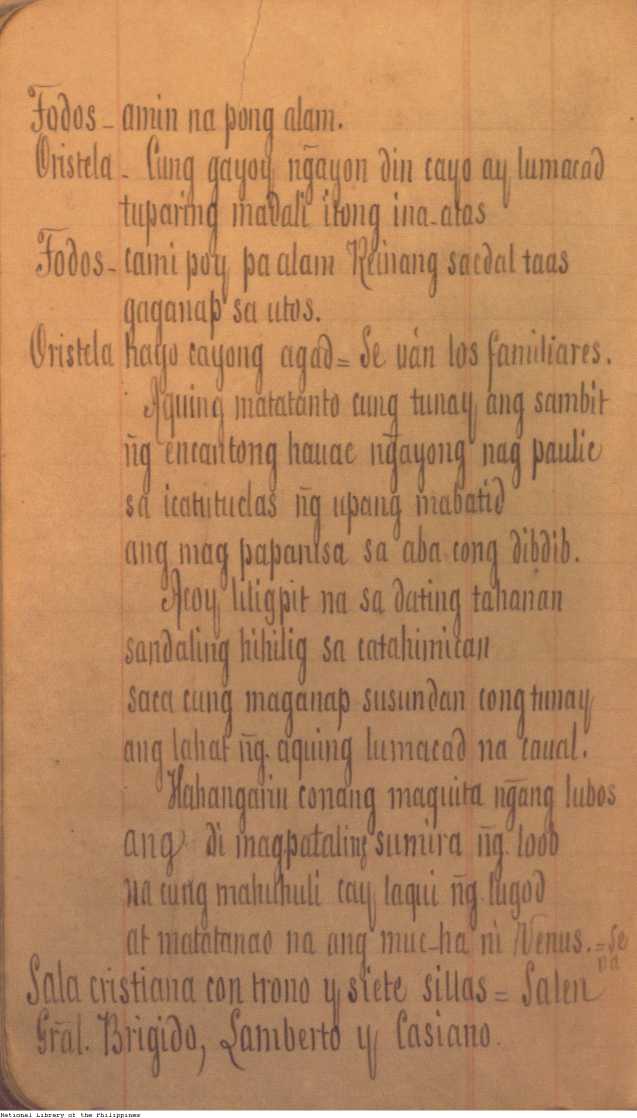 Todos - amin na pong alam.
Oristela - Cung gayoy n̄gayon din cayo ay lumacad
tuparing madali itong ina-atas
Todos - cami poy pa alam Reinang sacdal taas
gaganap sa utos.
Oristela hayo cayong agad = Se ván los familiares.
Aquing matatanto cung tunay ang sambit
n̄g encantong hauac n̄gayong nag paulic
sa icatutuclas n̄g upang mabatid
ang mag papanisa sa aba cong dibdib.
Acoy liligpit na sa dating tahanan
sandaling hihilig sa catahimican
saca cung maganap susundan cong tunay
ang lahat n̄g. aquing lumacad na caual.
Hahangariu conang maquita n̄gang lubos
ang di magpataling sumira n̄g. loob
na cung mahuhuli cay laqui n̄g. lugod
at matatanao na ang muc-ha ni Venus. = Se
va
Sala cristiana con trono y siete sillas = Salen
Gr̄al. Brigido, Lamberto y Casiano.
National Library of the Philippines